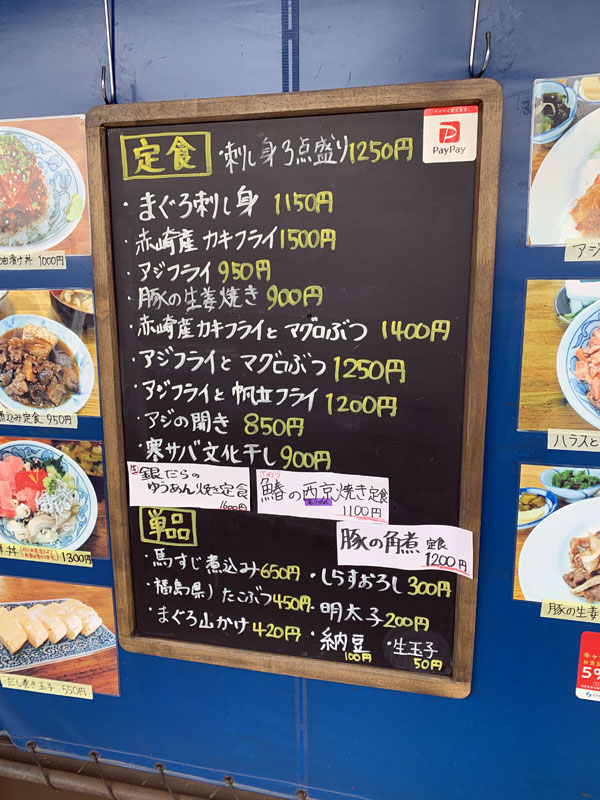 定食 ・刺し身3点盛り1250円
ペイペイ使えます
PayPay
・まぐろ刺し身 1150円
・赤崎産カキフライ1500円
・アジフライ 950円
・豚の生姜焼き 900円
・赤崎産カキフライとマグロぶつ 1400円
・アジフライとマグロぶつ 1250円
・アジフライと帆立フライ 1200円
・アジの開き 850円
・寒サバ文化干し900円
銀だらの
ゆうあん焼き定食
1600円
さわら
鰆の西京焼き定食
1100円
豚の角煮 定食
1200円
単品
・馬すじ煮込み650円 ・しらすおろし300円
・福島県)たこぶつ450円 ・明太子200円
・まぐろ山かけ420円 ・納豆 100円 ・生玉子 50円
油漬け丼 1000円
煮込み定食 950円
丼 1300円
だし巻き玉子 550円
アジ
ハラスと
豚の生姜
5%